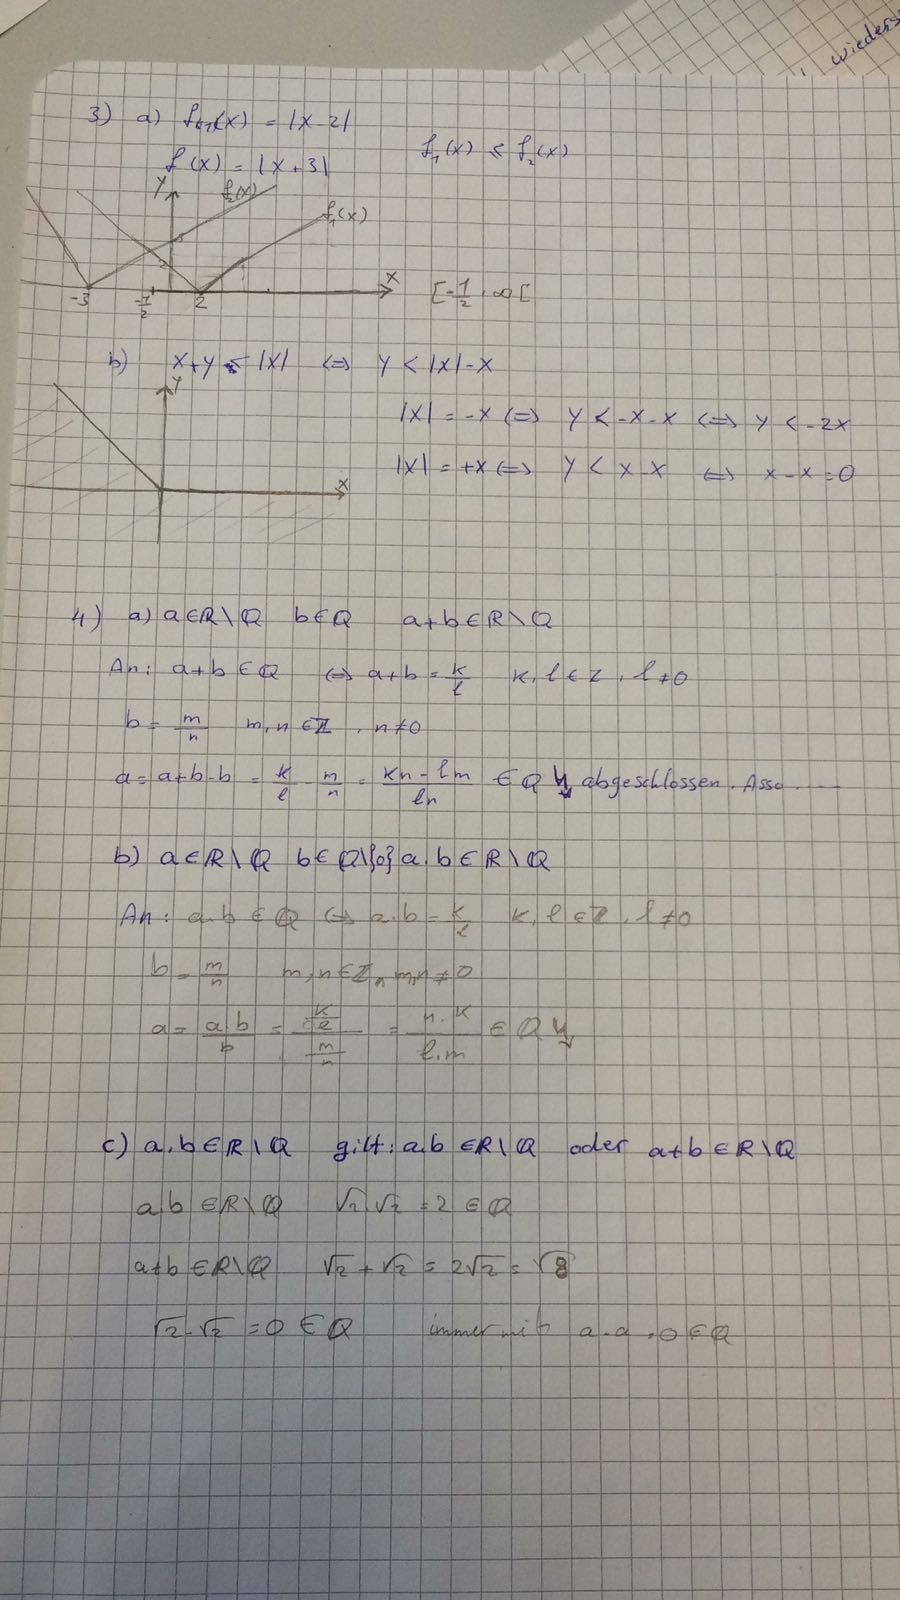 wieders
3) a) f₁(x) = |x-2|
f(x) = |x+3| f₁(x) ≤ f₂(x)
y f₂(x)
f₁(x)
x
-3 -1/2 2 [-1/2, ∞[
b) x+y < |x| <=> y < |x|-x
y
|x| = -x <=> y < -x-x <=> y < -2x
|x| = +x <=> y < x-x <=> x-x=0
x
4) a) a∈ℝ\ℚ b∈ℚ a+b∈ℝ\ℚ
An: a+b∈ℚ <=> a+b = k/l k,l∈ℤ, l≠0
b = m/n m,n∈ℤ, n≠0
a = a+b-b = k/l - m/n = (kn-lm)/ln ∈ℚ ↯ abgeschlossen. Asso.....
b) a∈ℝ\ℚ b∈ℚ\{0} a·b∈ℝ\ℚ
An: a·b∈ℚ <=> a·b = k/l k,l∈ℤ, l≠0
b = m/n m,n∈ℤ, m,n≠0
a = (a·b)/b = (k/l)/(m/n) = (n·k)/(l·m) ∈ℚ ↯
c) a,b∈ℝ\ℚ gilt: a·b∈ℝ\ℚ oder a+b∈ℝ\ℚ
a·b∈ℝ\ℚ √2·√2 = 2∈ℚ
a+b∈ℝ\ℚ √2+√2 = 2√2 = √8
√2-√2 = 0∈ℚ immer mit a-a=0∈ℚ